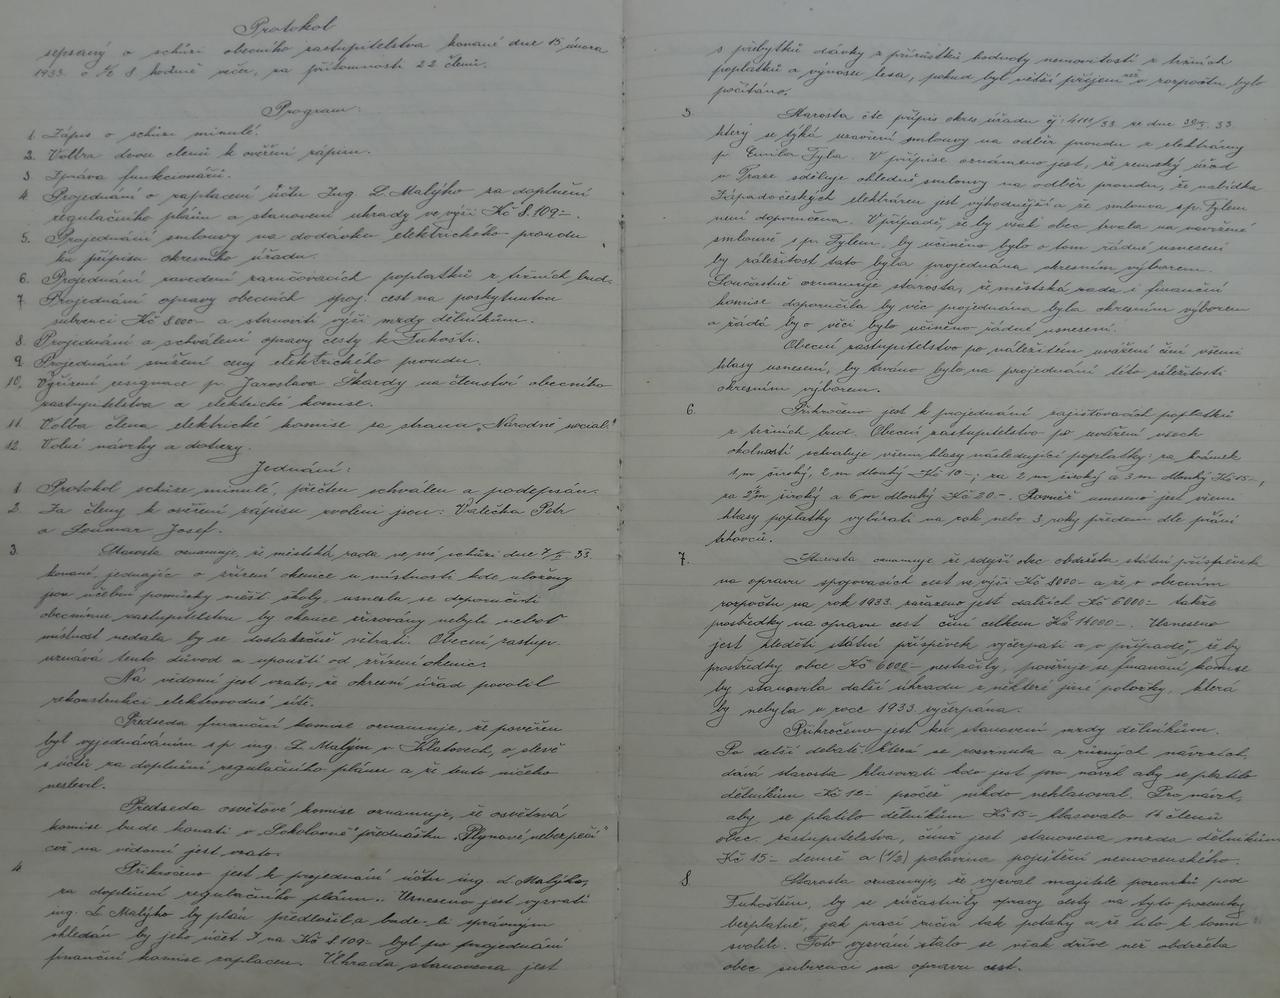 Protokol
sepsaný o schůzi obecního zastupitelstva konané dne 15 února
1933 o ½ 8 hodině večer, za přítomnosti 22 členů.
Program:
1. Zápis o schůzi minulé.
2. Volba dvou členů k ověření zápisu.
3 Zpráva funkcionářů.
4 Projednání o zaplacení účtu Ing. L. Malýho za doplnění
regulačního plánu a stanovení úhrady ve výši Kč 8.109-.
5. Projednání smlouvy na dodávku elektrického proudu
ku přípisu okresního úřadu.
6. Projednání zavedení zaručovacích poplatků z tržních bud.
7 Projednání opravy obecních spoj. cest na poskytnutou
subvenci Kč 8000- a stanoviti výši mzdy dělníkům.
8. Projednání a schválení opravy cesty k Tuhošti.
9. Projednání snížení ceny elektrického proudu.
10. Vyřízení resignace p. Jaroslava Škardy na členství obecního
zastupitelstva a elektrické komise.
11. Volba člena elektrické komise za stranu „Národně social."
12. Volné návrhy a dotazy.
Jednání:
1 Protokol schůze minulé, přečten schválen a podepsán.
2. Za členy k ověření zápisu zvoleni jsou: Valečka Petr
a Soumar Josef.
3. Starosta oznamuje, že městská rada, ve své schůzi dne 7/2 33
konané, jednajíc o zřízení okenice u místnosti kde uloženy
jsou učební pomůcky měšť. školy, usnesla se doporučiti
obecnímu zastupitelstvu by okenice zřizovány nebyly neboť
místnost nedala by se dostatečně větrati. Obecní zastup.
uznává tento důvod a upouští od zřízení okenic.
Na vědomí jest vzato, že okresní úřad povolil
rekonstrukci elektrovodné sítě.
Předseda finanční komise oznamuje, že pověřen
byl vyjednáváním s p. ing. L. Malým v Klatovech, o slevě
s účtu za doplnění regulačního plánu a že tento ničeho
neslevil.
Předseda osvětové komise oznamuje, že osvětová
komise bude konati v „Sokolovně" přednášku „Plynové nebezpečí"
což na vědomí jest vzato.
4 Přikročeno jest k projednání účtu ing. L. Malýho,
za doplnění regulačního plánu. Usneseno jest vyzvati
ing. L. Malýho by plán předložil a bude-li správným
shledán by jeho účet na Kč 8.109- byl po projednání
finanční komise zaplacen. Úhrada stanovena jest
s přebytků dávky z přírůstků hodnoty nemovitostí z tržních
poplatků a výnosu lesa, pokud byl větší příjem než v rozpočtu bylo
počítáno.
5 Starosta čte přípis okres. úřadu čj: 4111/33 ze dne 33
který se týká uzavření smlouvy na odběr proudu z elektrárny
p. Emila Tyla. V přípise oznámeno jest, že zemský úřad
v Praze sděluje ohledně smlouvy na odběr proudu, že nabídka
Západočeských elektráren jest výhodnější a že smlouva s p. Tylem
není doporučena. V případě, že by však obec trvala na navržené
smlouvě s p. Tylem, by učiněno bylo o tom řádné usnesení
by záležitost tato byla projednána okresním výborem.
Současně oznamuje starosta, že městská rada i finanční
komise doporučila by věc projednána byla okresním výborem
a žádá by o věci bylo učiněno řádné usnesení.
Obecní zastupitelstvo po náležitém uvážení činí všemi
hlasy usnesení, by trváno bylo na projednání této záležitosti
okresním výborem.
6. Přikročeno jest k projednání zajišťovacích poplatků
z tržních bud. Obecní zastupitelstvo po uvážení všech
okolností schvaluje všemi hlasy následující poplatky: za krámek
1 m široký, 2 m dlouhý Kč 10-, za 2 m široký a 3 m dlouhý Kč 15-,
za 2 m široký a 6 m dlouhý Kč 20-. Rovněž usneseno jest všemi
hlasy poplatky vybírati na rok nebo 3 roky předem dle přání
trhovců.
7. Starosta oznamuje že zdejší obec obdržela státní příspěvek
na opravu spojovacích cest ve výši Kč 8000- a že v obecním
rozpočtu na rok 1933 zařazeno jest dalších Kč 6000- takže
prostředky na opravu cest činí celkem Kč 14000-. Usneseno
jest hleděti státní příspěvek vyčerpati a v případě, že by
prostředky obce Kč 6000- nestačily, pověřuje se finanční komise
by stanovila další úhradu z některé jiné položky, která
by nebyla v roce 1933 vyčerpána.
Přikročeno jest ku stanovení mzdy dělníkům.
Po delší debatě, která se rozvinula a různých návrzích,
dává starosta hlasovati kdo jest pro návrh aby se platilo
dělníkům Kč 12- pročež nikdo nehlasoval. Pro návrh,
aby se platilo dělníkům Kč 15- hlasovalo 14 členů
obec. zastupitelstva, čímž jest stanovena mzda dělníkům
Kč 15- denně a (1/2) polovina pojištění nemocenského.
8 Starosta oznamuje, že vyzval majitele pozemků pod
Tuhoštěm, by se zúčastnily opravy cesty na tyto pozemky
bezplatně, jak prací ruční tak potahy a že tito k tomu
svolili. Toto vyzvání stalo se však dříve než obdržela
obec subvenci na opravu cest.